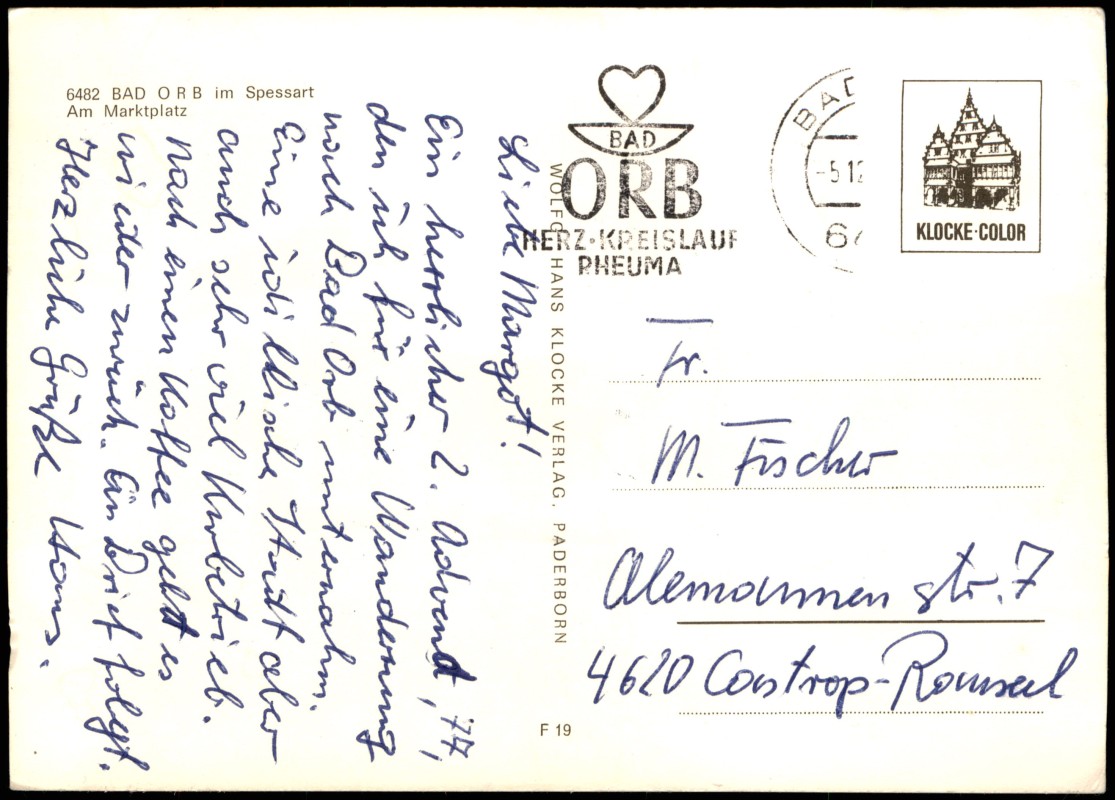 6482 BAD ORB im Spessart
Am Marktplatz
Liebe Margot!
Ein herrlicher 2. Advent, 77,
den ich für eine Wanderung
nach Bad Orb unternahm.
Eine idillische Stadt aber
auch sehr viel Kurbetrieb.
Nach einen Kaffee geht es
wieder zurück. Ein Brief folgt.
Herzliche Grüße Hans.
WOLFG HANS KLOCKE VERLAG. PADERBORN
F 19
BAD
ORB
HERZ·KREISLAUF
RHEUMA
BAD
-5.12
64
KLOCKE·COLOR
Fr.
M. Fischer
Alemannenstr. 7
4620 Castrop-Rauxel